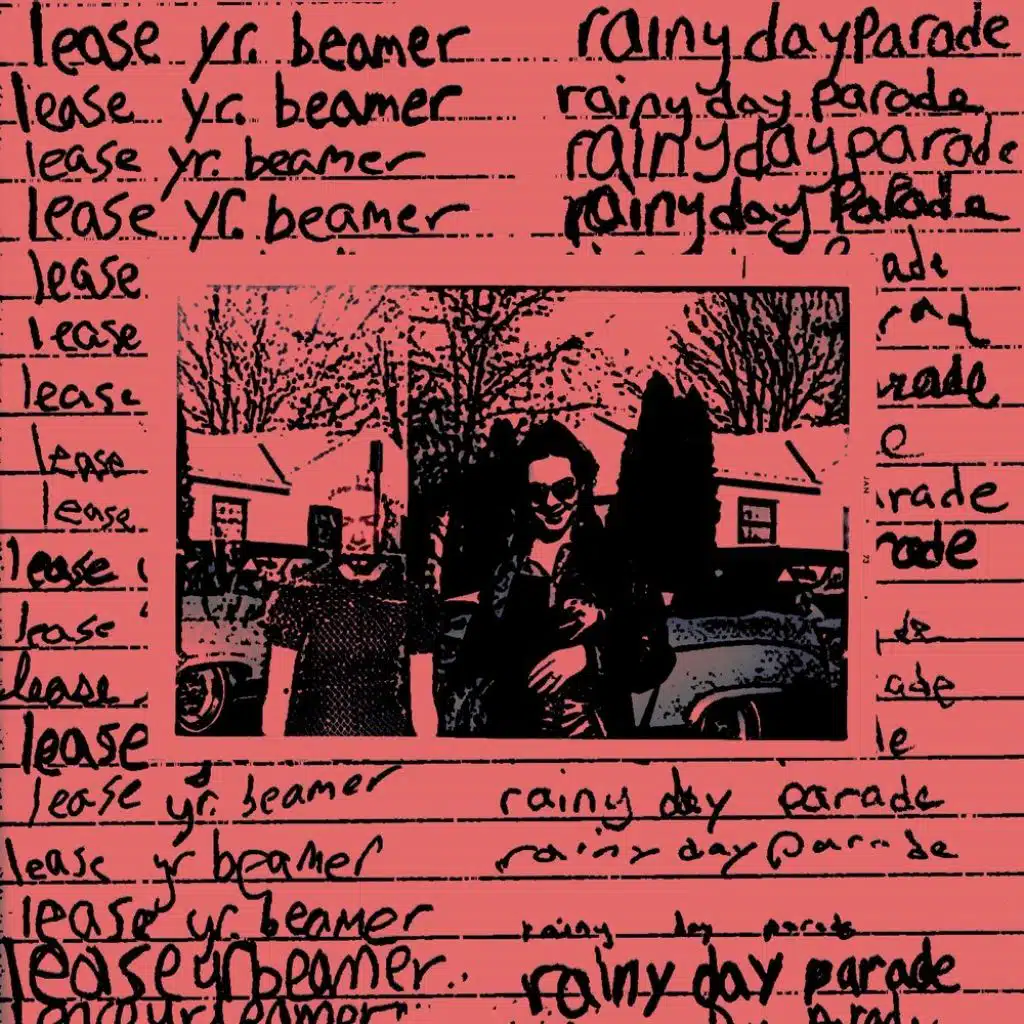 lease yr. beamer rainy day parade
lease yr. beamer rainy day parade
lease yr. beamer rainy day parade
lease yr. beamer rainy day parade
lease ade
lease rad
lease rade
lease e
lease rade
lease rade
lease de
lease ade
lease le
lease yr. beamer rainy day parade
lease yr beamer rainy day parade
lease yr. beamer rainy day parade
lease yr beamer. rainy day parade
JAN 73